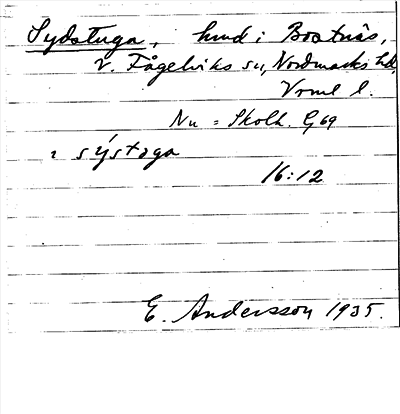 Sydstuga, hmd i Bostnäs,
V. Fågelviks sn, Nordmarks hd,
Vrml l.
Nu = Skolh. G69
: sýstoga
16:12
E. Andersson 1935.